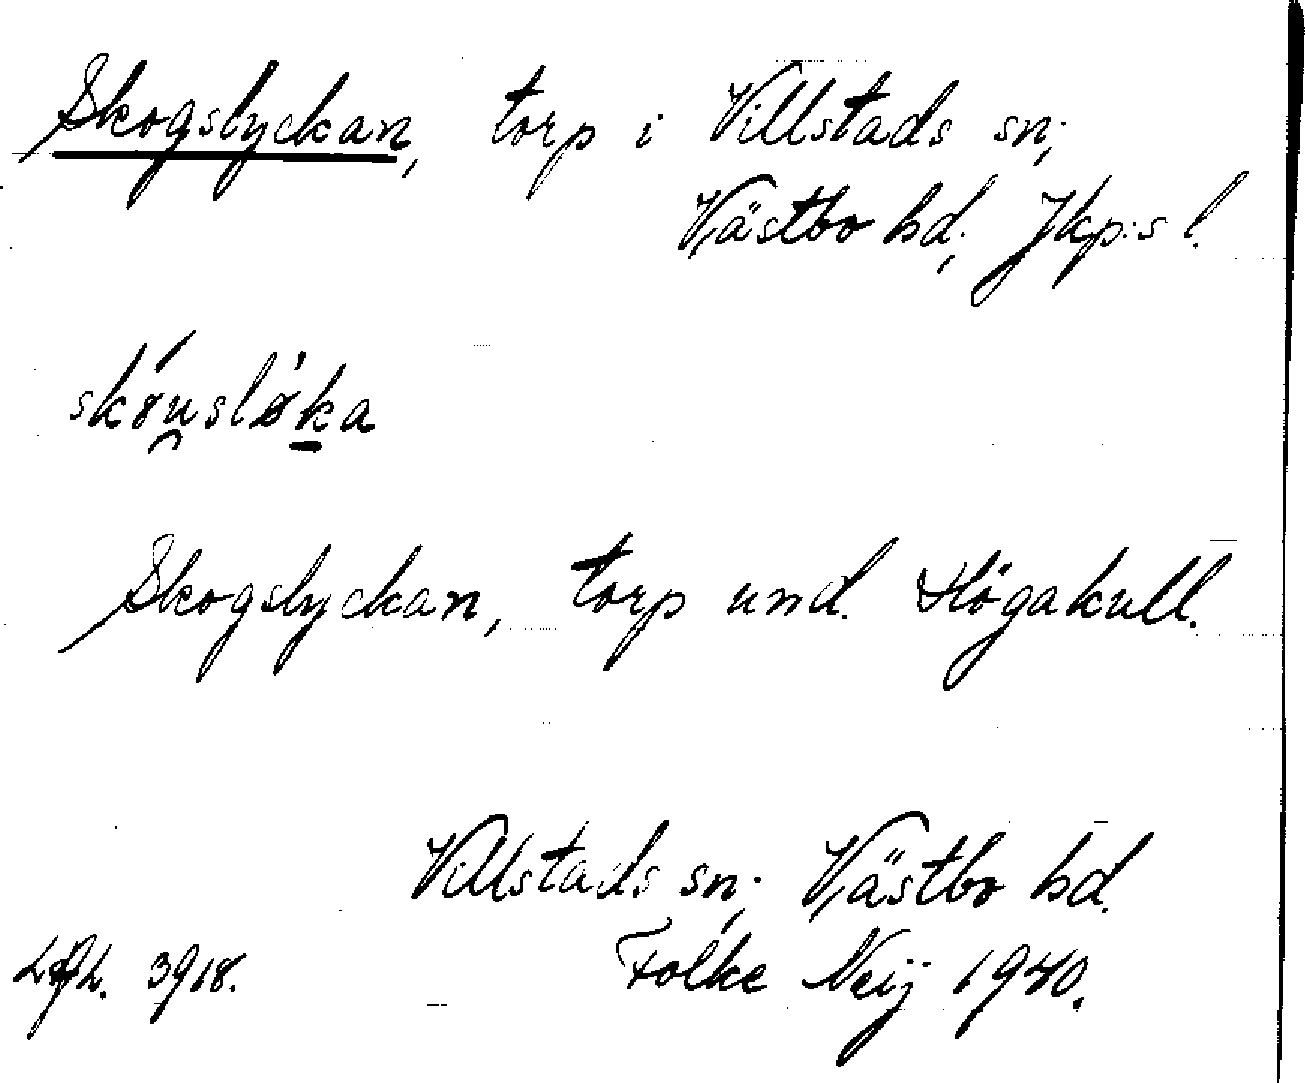 Skogslyckan, torp i Villstads sn;
Västbo hd; Jkp:s l.
Skogslyckan, torp und. Högakull.
Villstads sn; Västbo hd.
Folke Neij 1940.
3918.